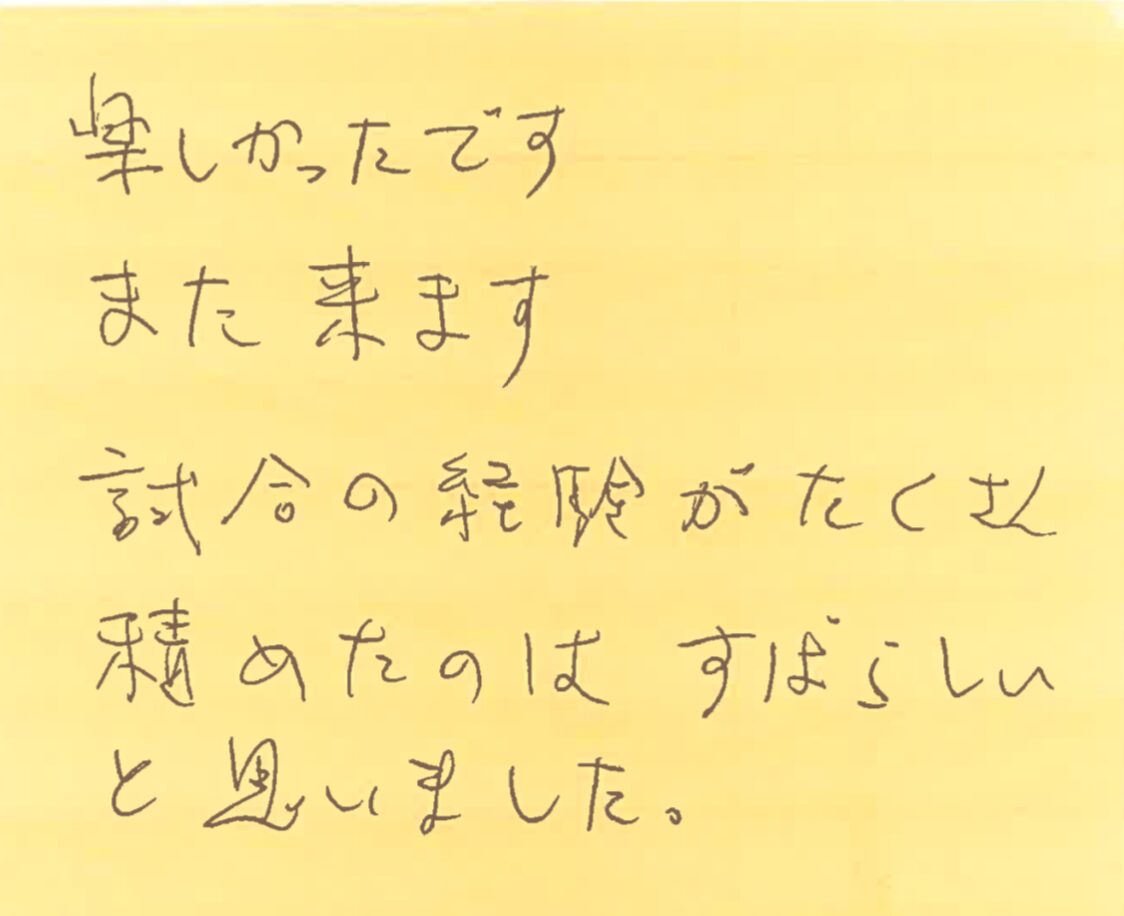 楽しかったです
また来ます
試合の経験がたくさん
積めたのは すばらしい
と思いました。